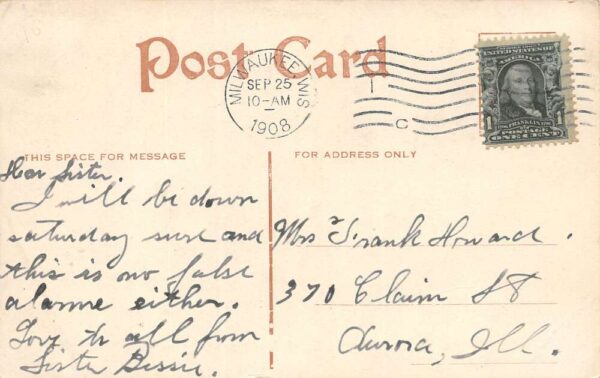 Post Card
MILWAUKEE, WIS.
SEP 25
10-AM
1908
C
UNITED STATES OF
AMERICA
1 FRANKLIN 1
POSTAGE
ONE CENT
THIS SPACE FOR MESSAGE
FOR ADDRESS ONLY
Dear Sister.
I will be down
saturday sure and
this is no false
alarme either.
Love to all from
Sister Bessie.
Mrs Frank Howard.
370 Claim St
Aurora, Ill.